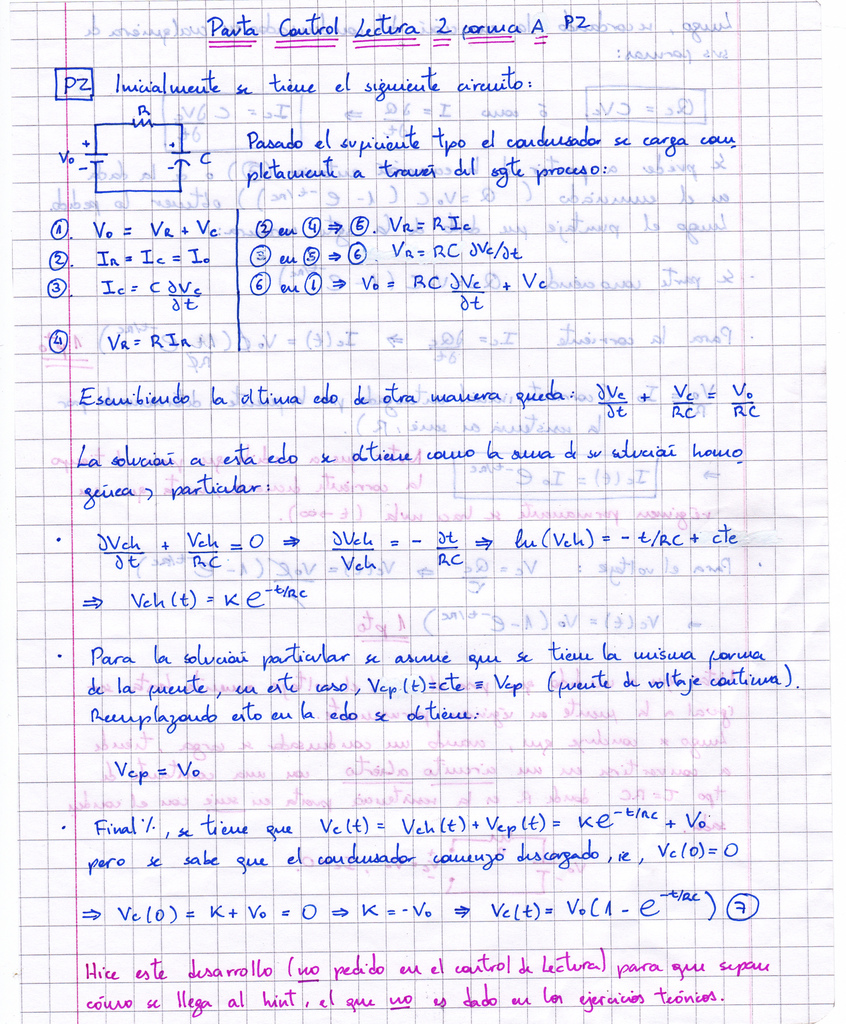 Pauta Control Lectura 2 forma A P2
P2 Inicialmente se tiene el siguiente circuito:
R
V₀ + - + - C
Pasado el suficiente tpo el condensador se carga com
pletamente a través del sgte proceso:
① V₀ = V_R + V_c
② I_R = I_c = I₀
③ I_c = C ∂V_c/∂t
④ V_R = R I_R
② en ④ ⇒ ⑤. V_R = R I_c
③ en ⑤ ⇒ ⑥. V_R = RC ∂V_c/∂t
⑥ en ① ⇒ V₀ = RC ∂V_c/∂t + V_c
Escribiendo la última edo de otra manera queda: ∂V_c/∂t + V_c/RC = V₀/RC
La solución a esta edo se obtiene como la suma de su solución homo
génea y particular:
· ∂V_ch/∂t + V_ch/RC = 0 ⇒ ∂V_ch/V_ch = - ∂t/RC ⇒ ln(V_ch) = - t/RC + cte
⇒ V_ch(t) = K e^(-t/RC)
· Para la solución particular se asume que se tiene la misma forma
de la fuente, en este caso, V_cp(t)=cte ≡ V_cp (fuente de voltaje continua).
Reemplazando esto en la edo se obtiene:
V_cp = V₀
· Final%, se tiene que V_c(t) = V_ch(t) + V_cp(t) = K e^(-t/RC) + V₀
pero se sabe que el condensador comenzó descargado, ie, V_c(0) = 0
⇒ V_c(0) = K + V₀ = 0 ⇒ K = -V₀ ⇒ V_c(t) = V₀(1 - e^(-t/RC)) ⑦
Hice este desarrollo (no pedido en el control de Lectura) para que sepan
cómo se llega al hint, el que no es dado en los ejercicios teóricos.